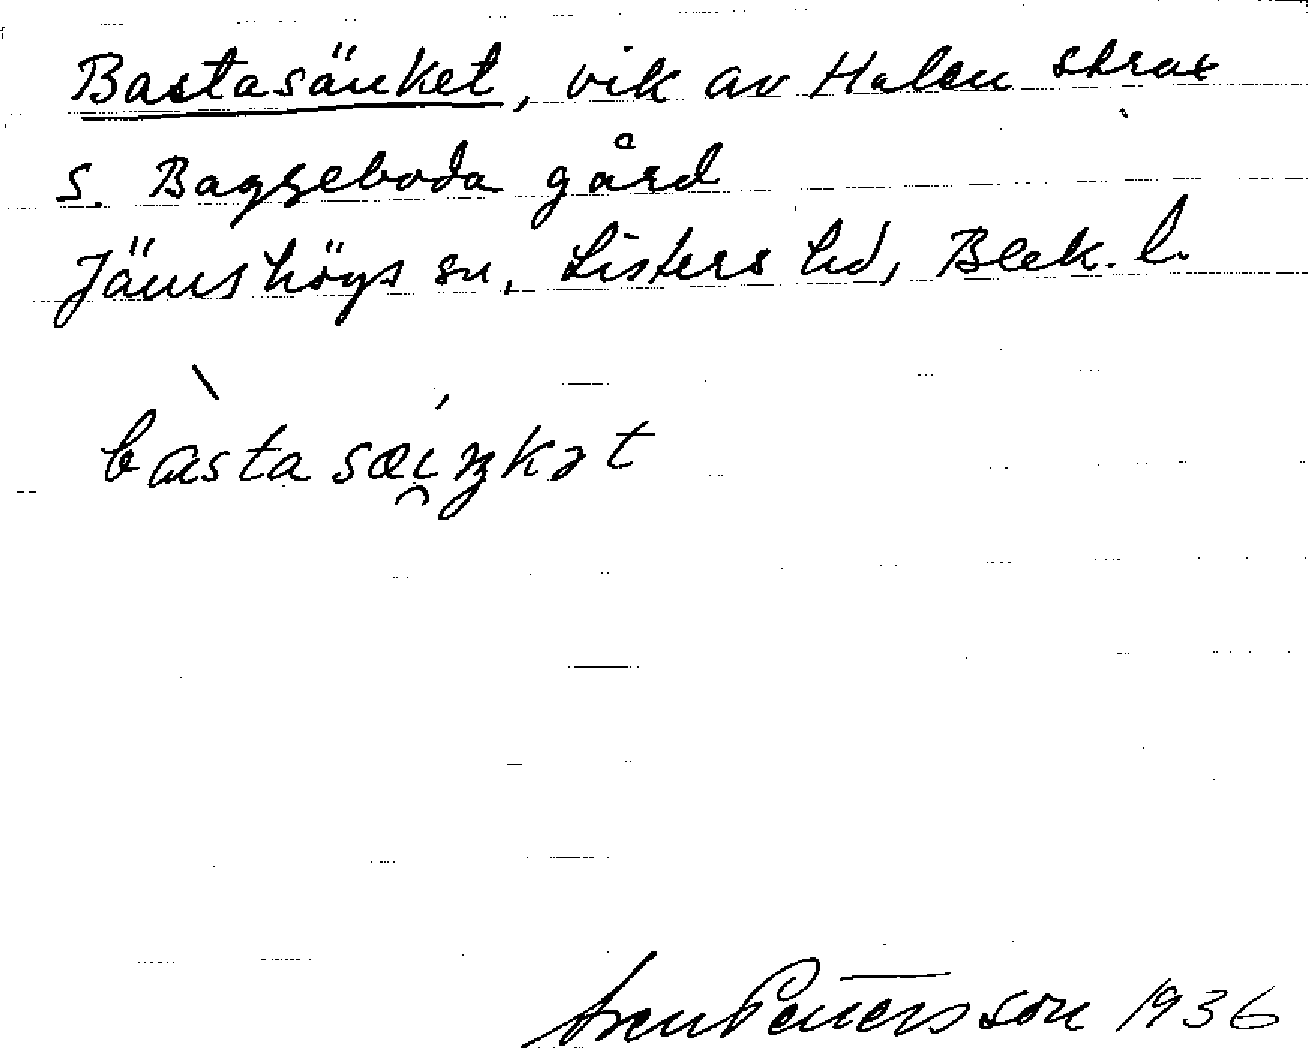 Bastasänket, vik av Halen strax
S. Baggeboda gård
Jämshögs sn, Listers hd, Blek. l.
bàstasæi̯ŋkət
Sven Benson 1936